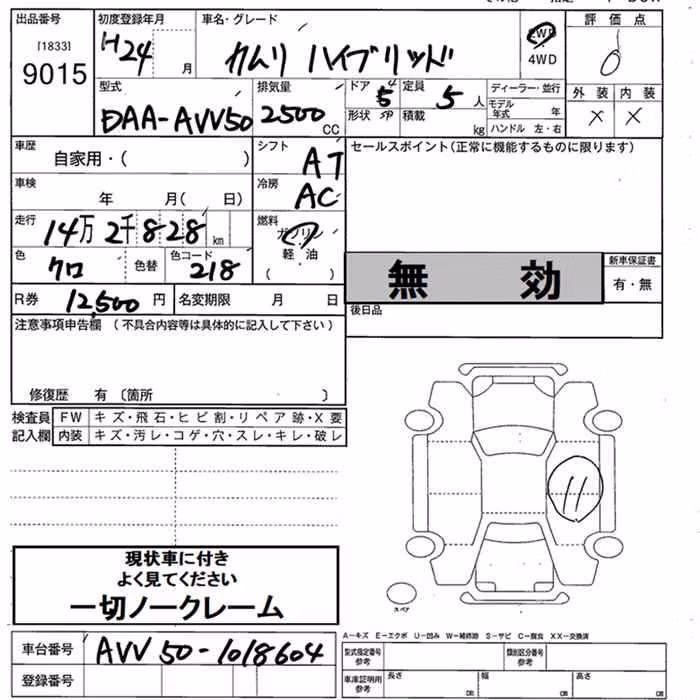 出品番号
[1833]
9015
初度登録年月
H24
月
車名・グレード
カムリ ハイブリッド
2WD
4WD
評価点
0
外装 内装
× ×
型式
DAA-AVV50
排気量
2500
CC
ドア 4
5
形状 SD
定員
5 人
積載
kg
ディーラー・並行
モデル年式 年
ハンドル 左・右
車歴
自家用・( )
シフト
AT
セールスポイント(正常に機能するものに限ります)
車検
年 月( 日)
冷房
AC
走行
14万 2千 828 km
燃料
ガソリン
軽油
( )
色
クロ
色替
色コード
218
無 効
新車保証書
有・無
R券 12,500 円
名変期限 月 日
後日品
注意事項申告欄 (不具合内容等は具体的に記入して下さい)
修復歴 有 〔箇所 〕
検査員
記入欄
FW キズ・飛石・ヒビ割・リペア跡・X要
内装 キズ・汚レ・コゲ・穴・スレ・キレ・破レ
11
スペア
現状車に付き
よく見てください
一切ノークレーム
A-キズ E-エクボ U-凹み W-補修跡 S-サビ C-腐食 XX-交換済
車台番号 AVV50-1018604
登録番号
型式指定番号
参考
類別区分番号
参考
車庫証明用
参考
長さ cm
幅 cm
高さ cm